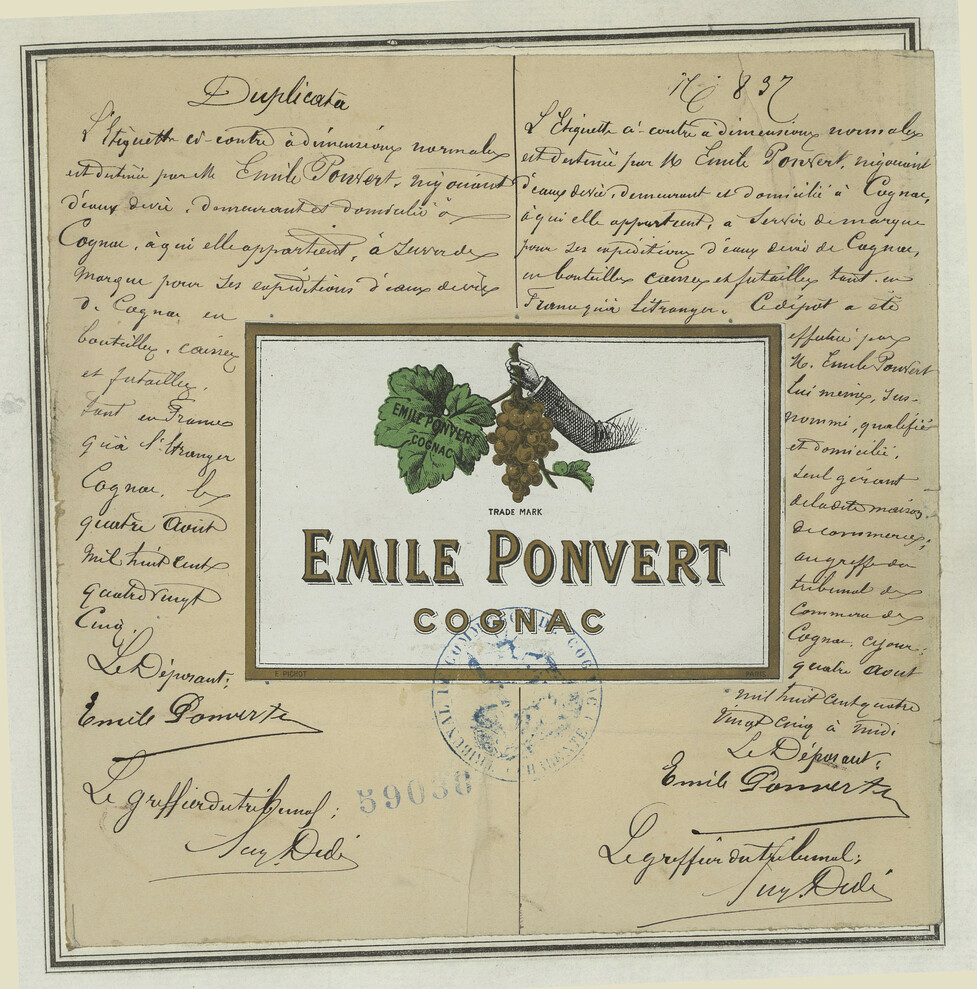 Duplicata
L'Etiquette ci-contre à dimensions normales
est destinée par M Emile Ponvert, négociant
d'eaux de vie, demeurant et domicilié à
Cognac, à qui elle appartient, à Servir de
Marque pour ses expéditions d'eaux de vie
de Cognac en
bouteilles, caisses
et futailles,
tant en France
qu'à l'étranger
Cognac, le
quatre Août
Mil huit cent
quatre vingt
Cinq.
Le Déposant;
Emile Ponvert
Le greffier du tribunal;
No 837
L'Etiquette ci-contre à dimensions normales
est destinée par M Emile Ponvert, négociant
d'eaux de vie, demeurant et domicilié à Cognac,
à qui elle appartient, à Servir de marque
pour ses expéditions d'eaux de vie de Cognac,
en bouteilles caisses et futailles tant en
France qu'à L'étranger. Ce dépôt a été
effectué par
M. Emile Ponvert
lui même, sus-
nommé, qualifié
et domicilié,
seul gérant
de la dite maison
de commerce;
au greffe du
tribunal de
Commerce de
Cognac, ce jour;
quatre août
mil huit cent quatre
vingt cinq à midi
Le Déposant;
Emile Ponvert
Le greffier du tribunal;
EMILE PONVERT
COGNAC
TRADE MARK
EMILE PONVERT
COGNAC
F. PICHOT
PARIS
TRIBUNAL DE COMMERCE DE COGNAC
CHARENTE
59038